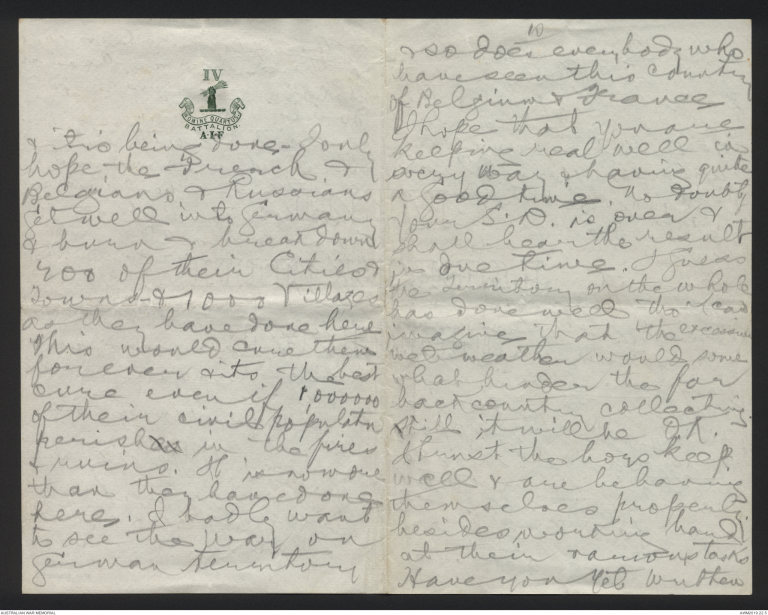 IV
NOMINE QUARTUS
BATTALION.
A·I·F
& it is being done. I only
hope the French & 
Belgians & Russians
get well into Germany
& burn & break down
700 of their Cities &
Towns & 1000 Villages
as they have done here
This would cure them
for ever & its the best
cure even if 1,000000
of their civil populatn
perish in the fires
& ruins. It is no more
than they have done
here. I badly want
to see the war on
German territory
10
& so does everybody who
have seen this Country
of Belgium & France
I hope that you are
keeping real well in
every way & having quite
a good time. No doubt
your S.D. is over & I
shall hear the result
in due time. I guess
the Territory on the whole
has done well tho' I can
imagine that the excessive
wet weather would some
what hinder the far
back country collecting.
Still it will be OK.
I trust the boys keep
well & are behaving
themselves properly
besides working hard
at their various tasks
Have you yet written
AUSTRALIAN WAR MEMORIAL